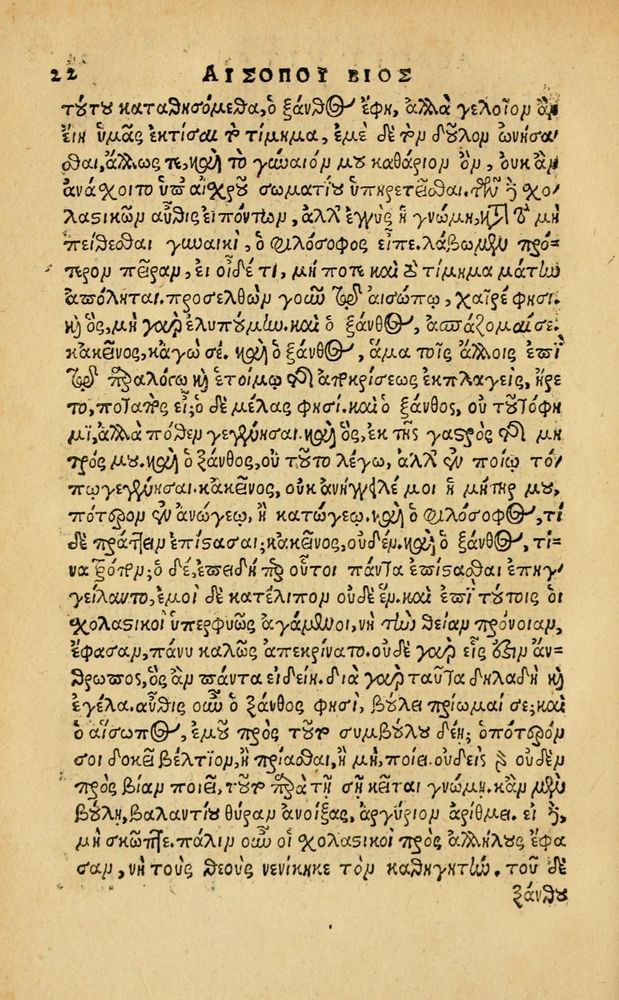 22 ΑΙΣΟΠΟΥ ΒΙΟΣ
τούτου καταθησόμεθα, ὁ ξάνθος ἔφη, ἀλλὰ γελοῖον ἂν
εἴη ὑμᾶς ἐκτίσαι τὸ τίμημα, ἐμὲ δὲ τὸν δοῦλον ὠνήσα-
θαι, ἄλλως τε, καὶ τὸ γύναιόν μου καθάριον ὂν, οὐκ ἂν
ἀνάχοιτο ὑπ' αἰσχροῦ σωματίου ὑπηρετεῖσθαι. τῶν δὲ σχο-
λαστικῶν αὖθις εἰπόντων, ἀλλ' ἐγγὺς ἡ γνώμη, καὶ τοῦ μὴ
πείθεσθαι γυναικὶ, ὁ φιλόσοφος εἶπε. λάβωμεν πρό-
τερον πεῖραν, εἰ οἶδέ τι, μή ποτε καὶ τὸ τίμημα μάτην
ἀπόληται. προσελθὼν γοῦν τῷ αἰσώπῳ, χαῖρέ φησι.
καὶ ὃς, μὴ γὰρ ἐλυπούμην. καὶ ὁ ξάνθος, ἀσπάζομαί σε.
κἀκεῖνος, κἀγώ σε. καὶ ὁ ξάνθος, ἅμα τοῖς ἄλλοις ἐπὶ
τῷ παραλόγῳ καὶ ἑτοίμῳ τῆς ἀποκρίσεως ἐκπλαγεὶς, ἤρε
το, ποταπὸς εἶ; ὁ δὲ μέλας φησί. καὶ ὁ ξάνθος, οὐ τοῦτό φη
μϊ, ἀλλὰ πόθεν γεγέννησαι. καὶ ὃς, ἐκ τῆς γαστρὸς τῆς μη
τρός μου. καὶ ὁ ξάνθος, οὐ τοῦτο λέγω, ἀλλ' ἐν ποίῳ τό-
πῳ γεγέννησαι. κἀκεῖνος, οὐκ ἀνήγγειλέ μοι ἡ μήτηρ μου,
πότερον ἐν ἀνώγεῳ, ἢ κατώγεῳ. καὶ ὁ φιλόσοφος, τί
δὲ πράττειν ἐπίστασαι; κἀκεῖνος, οὐδέν. καὶ ὁ ξάνθος, τί-
να τρόπον; ὁ δὲ, ἐπειδήπερ οὗτοι πάντα ἐπίστασθαι ἐπηγ-
γείλαντο, ἐμοὶ δὲ κατέλιπον οὐδὲ ἕν. καὶ ἐπὶ τούτοις οἱ
σχολαστικοὶ ὑπερφυῶς ἀγάμενοι, νὴ τὴν θείαν πρόνοιαν,
ἔφασαν, πάνυ καλῶς ἀπεκρίνατο. οὐδὲ γὰρ εἷς ἐστιν ἄν-
θρωπος, ὃς ἂν πάντα εἰδείη. διὰ γὰρ ταῦτα δηλαδὴ καὶ
ἐγέλα. αὖθις οὖν ὁ ξάνθος φησὶ, βούλει πρίωμαί σε; καὶ
ὁ αἴσωπος, ἐμοῦ πρὸς τοῦτο συμβούλου δέη; ὁπότερόν
σοι δοκεῖ βέλτϊον, ἢ πρίασθαι, ἢ μὴ, ποίει. οὐδεὶς γὰρ οὐδὲν
πρὸς βίαν ποιεῖ, τοῦτο παρὰ τῇ σῇ κεῖται γνώμῃ. κἂν μὲν
βούλῃ, βαλαντίου θύραν ἀνοίξας, ἀργύριον ἀρίθμει. εἰ δὲ,
μὴ σκῶπτε. πάλιν οὖν οἱ σχολαστικοὶ πρὸς ἀλλήλους ἔφα
σαν, νὴ τοὺς θεοὺς νενίκηκε τὸν καθηγητήν. τοῦ δὲ
ξάνθου